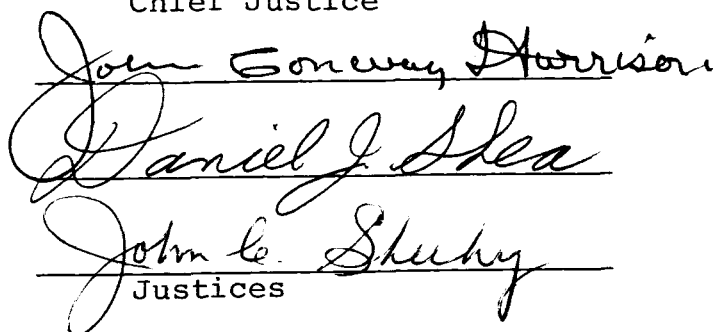 Chief Justice
John Conway Harrison
Daniel J. Shea
John C. Sheehy
Justices